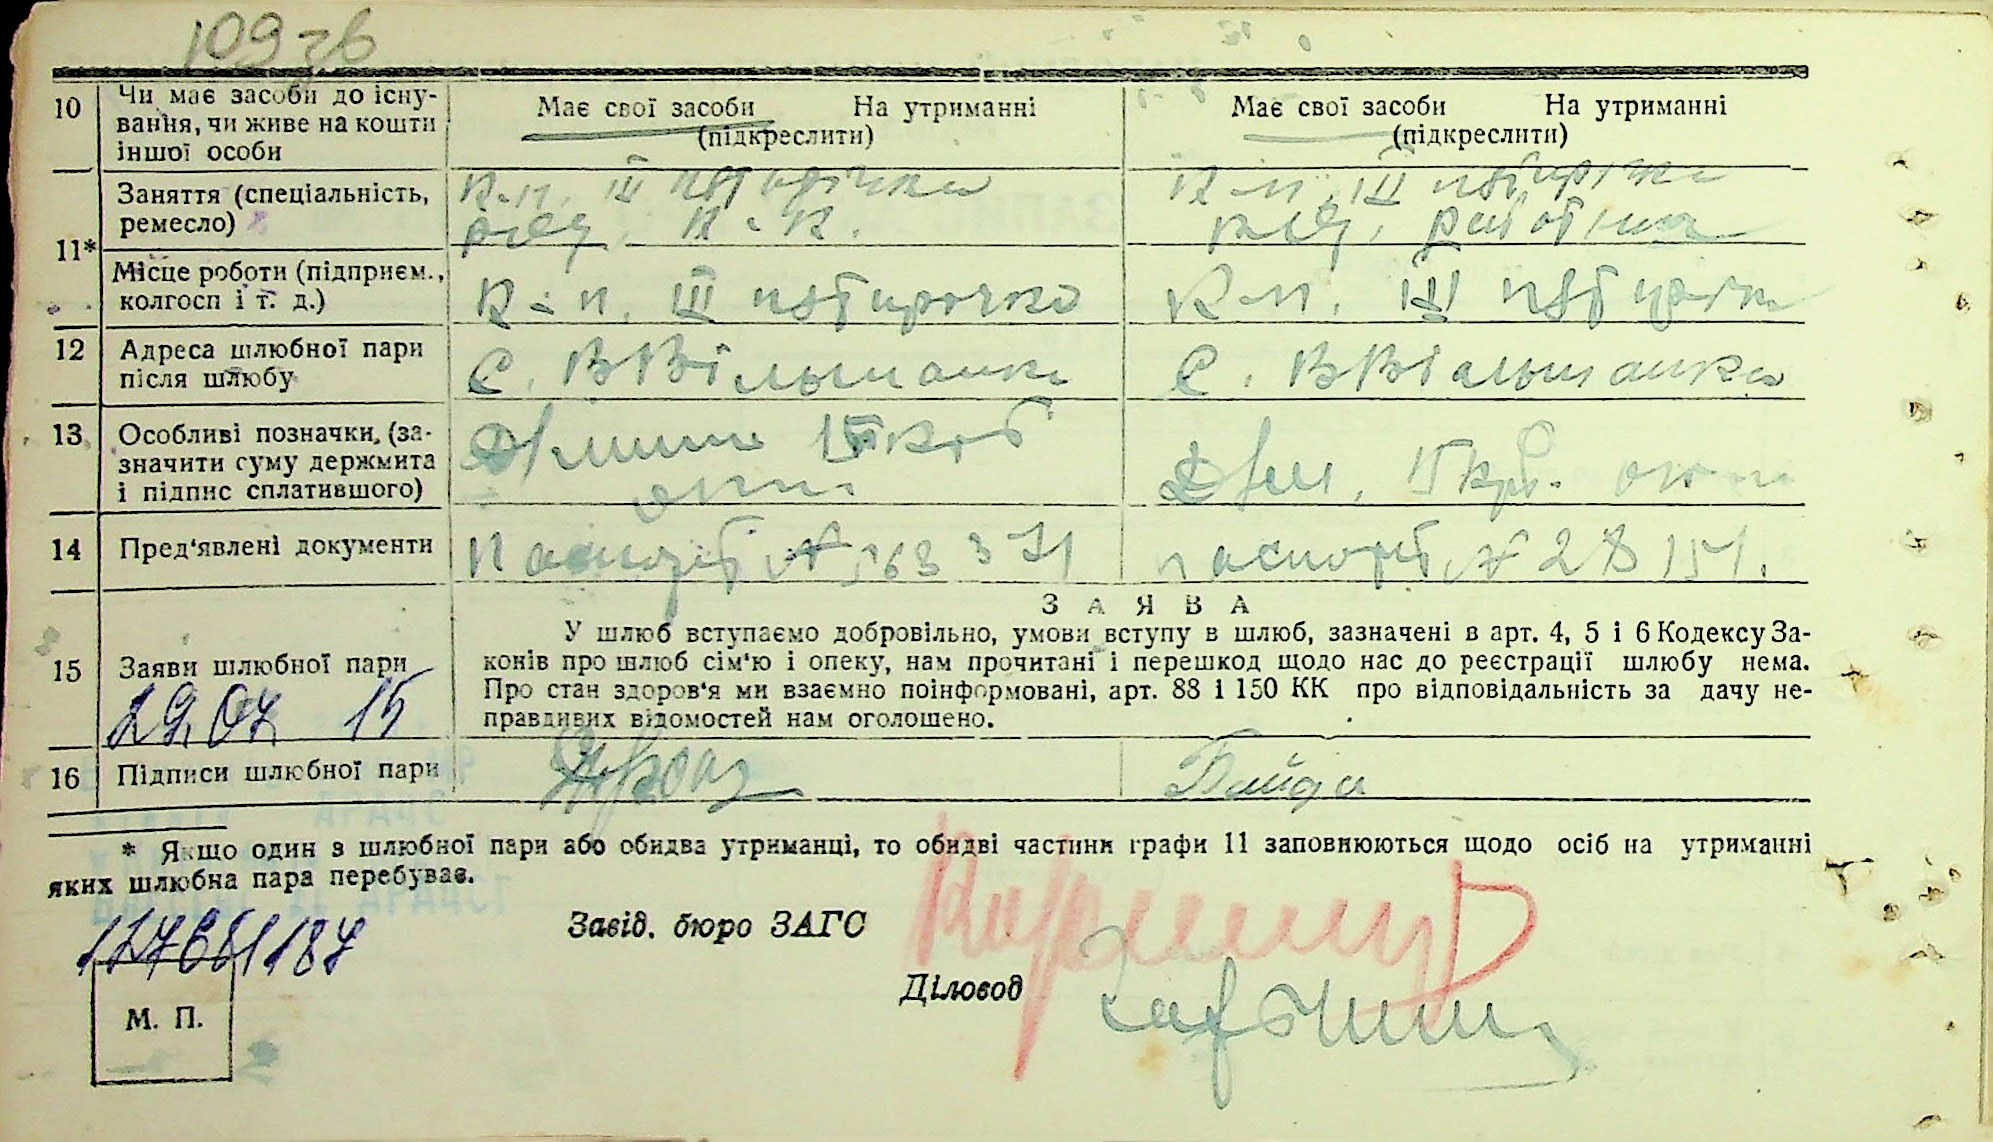 109зв
10 Чи має засоби до існу-
вання, чи живе на кошти
іншої особи
Має свої засоби На утриманні
(підкреслити)
Має свої засоби На утриманні
(підкреслити)
11* Заняття (спеціальність,
ремесло)
к-п. III
к-п. III
Місце роботи (підприєм.,
колгосп і т. д.)
К-п. III пятирічка
К-п. III пятирічка
12 Адреса шлюбної пари
після шлюбу
С. ВВільшанка
С. ВВільшанка
13 Особливі позначки (за-
значити суму держмита
і підпис сплатившого)
14 Пред'явлені документи
Паспорт № 563371
паспорт № 28151.
З А Я В А
15 Заяви шлюбної пари
29.07. 15
У шлюб вступаємо добровільно, умови вступу в шлюб, зазначені в арт. 4, 5 і 6 Кодексу За-
конів про шлюб сім'ю і опеку, нам прочитані і перешкод щодо нас до реєстрації шлюбу нема.
Про стан здоров'я ми взаємно поінформовані, арт. 88 і 150 КК про відповідальність за дачу не-
правдивих відомостей нам оголошено.
16 Підписи шлюбної пари
Байда
* Якщо один з шлюбної пари або обидва утриманці, то обидві частини графи 11 заповнюються щодо осіб на утриманні
яких шлюбна пара перебуває.
Завід. бюро ЗАГС
Діловод
М. П.